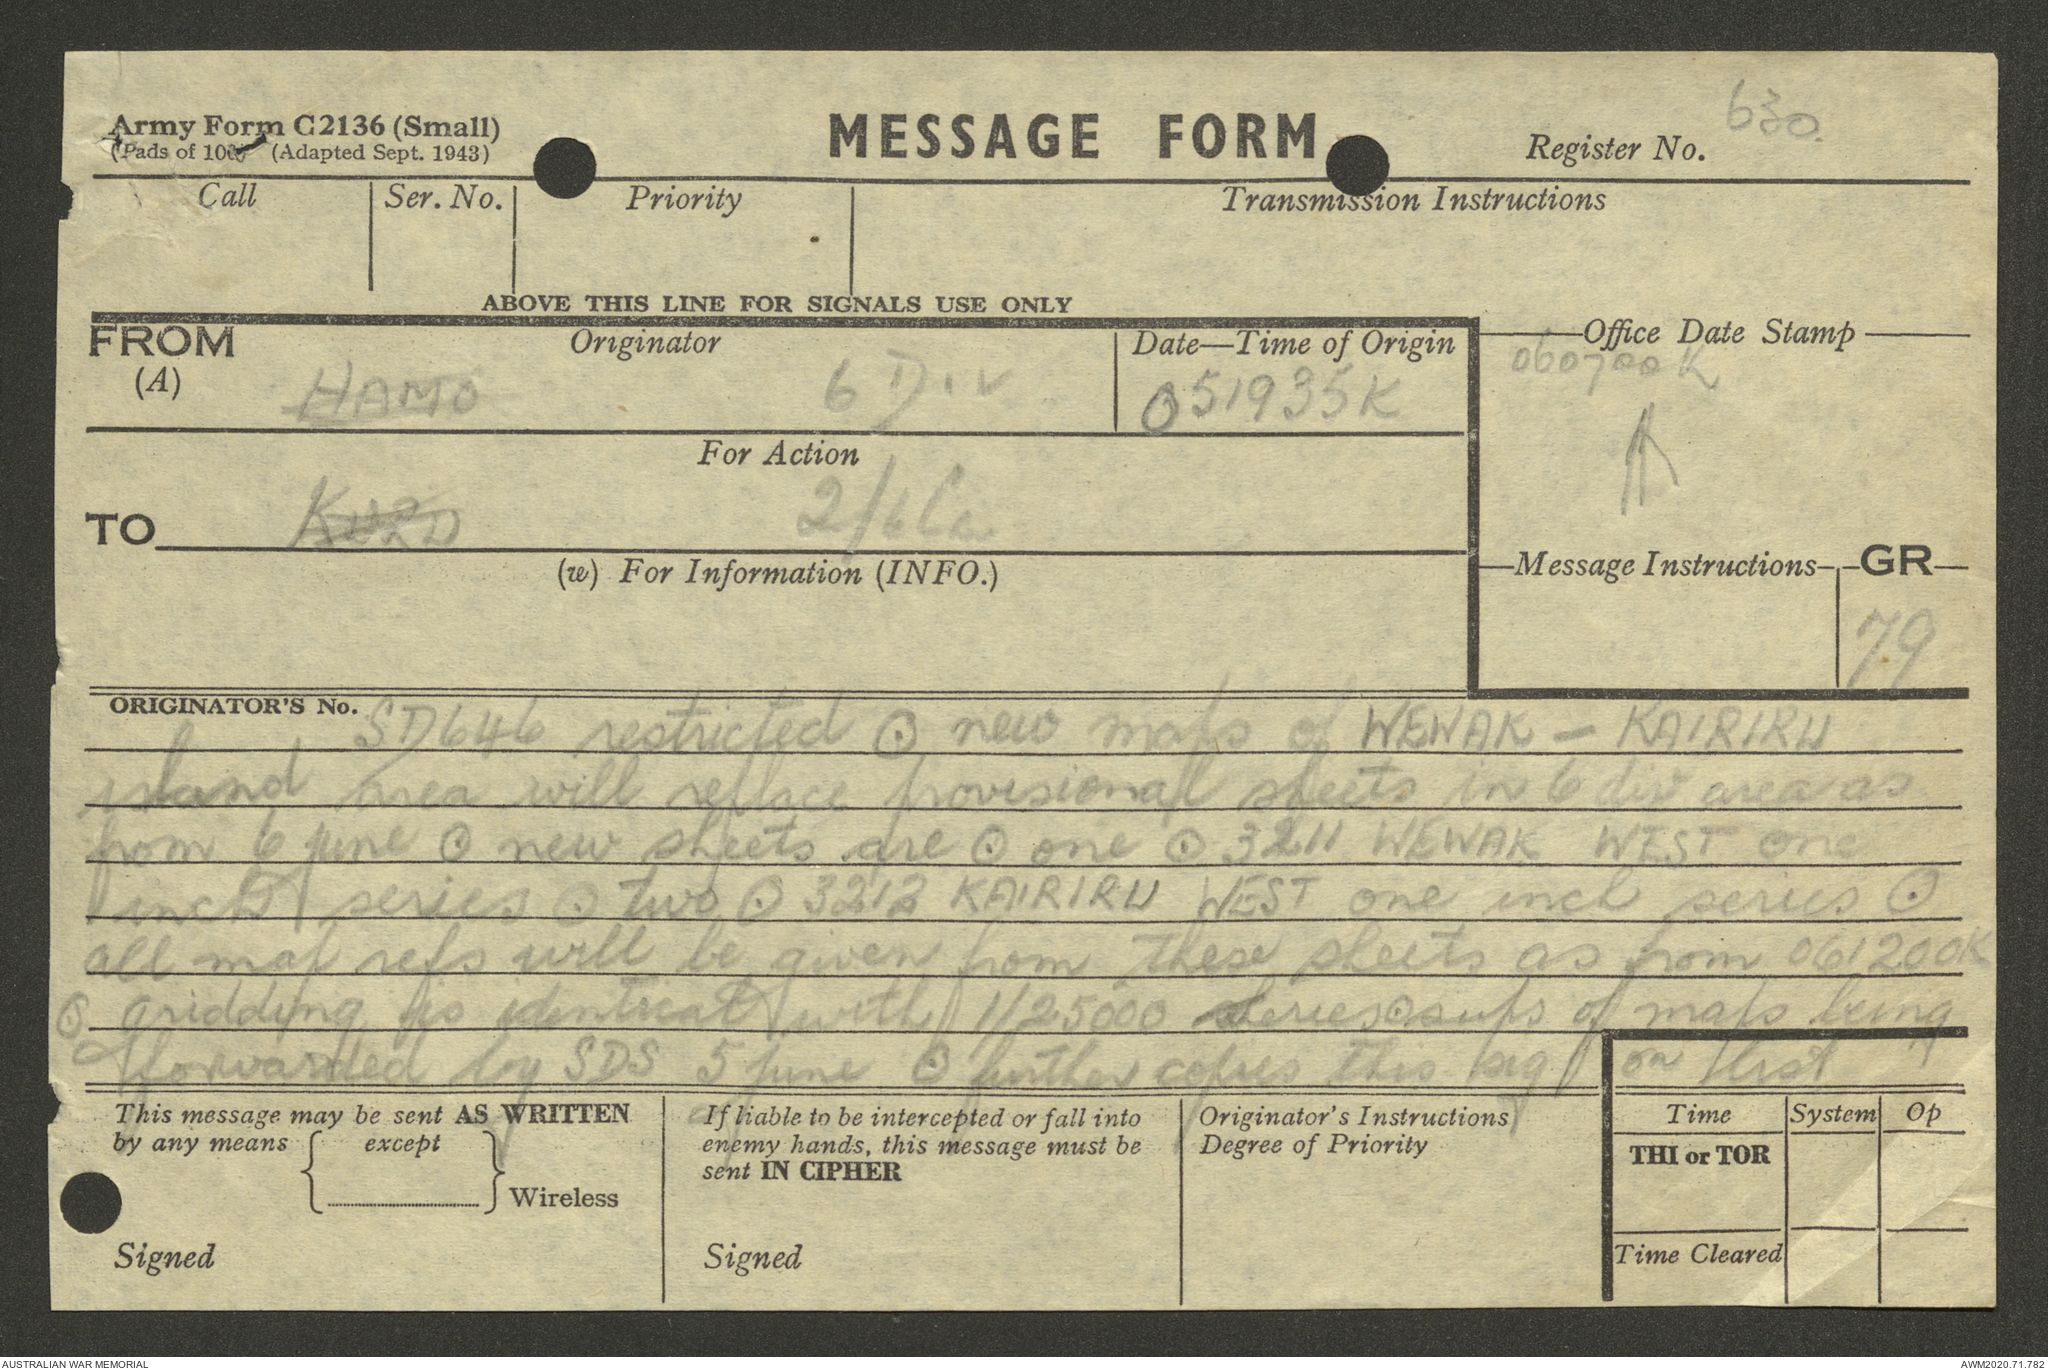 Army Form C2136 (Small)
(Pads of 100) (Adapted Sept. 1943)
MESSAGE FORM
Register No. 630.
Call
Ser. No.
Priority
Transmission Instructions
ABOVE THIS LINE FOR SIGNALS USE ONLY
FROM
(A)
Originator
6 Div
Date—Time of Origin
051935K
Office Date Stamp
060700K
For Action
TO
2/6 Ca.
(w) For Information (INFO.)
Message Instructions
GR
79
ORIGINATOR'S No.
SD646 restricted ⊙ new maps of WEWAK – KAIRIRU
island area will replace provisional sheets in 6 div area as
from 6 june ⊙ new sheets are ⊙ one ⊙ 3211 WEWAK WEST one
inch series ⊙ two ⊙ 3212 KAIRIRU WEST one inch series ⊙
all map refs will be given from these sheets as from 061200K
⊙ gridding is identical with 1/25000 series ⊙ sups of maps being
forwarded by SDS 5 june ⊙ further copies this
This message may be sent AS WRITTEN
by any means except
Wireless
Signed
If liable to be intercepted or fall into
enemy hands, this message must be
sent IN CIPHER
Signed
Originator's Instructions
Degree of Priority
Time
System
Op
THI or TOR
Time Cleared
AUSTRALIAN WAR MEMORIAL
AWM2020.71.782